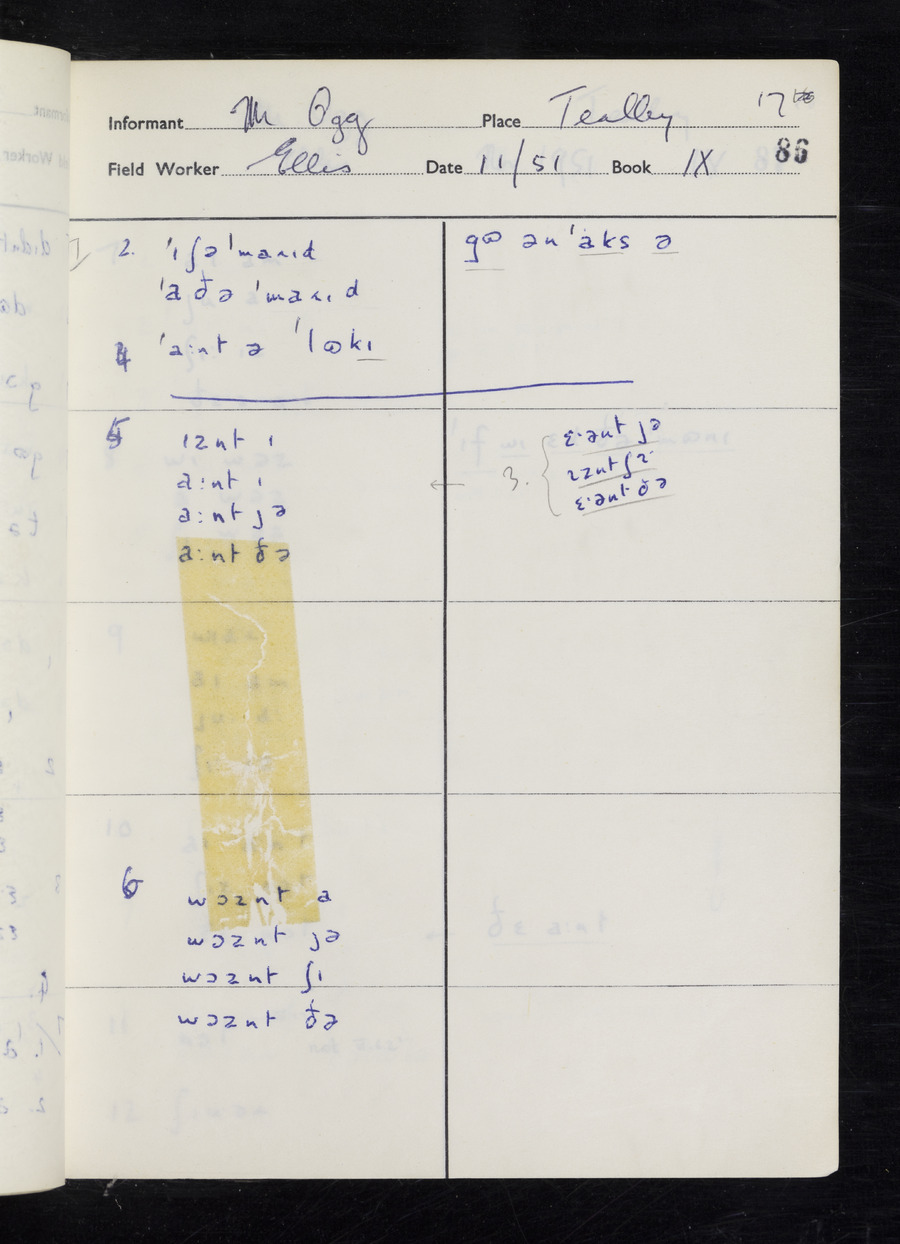 Informant Mr Ogg Place Tealby 17
Field Worker Ellis Date 11/51 Book IX 86
2. ˈɪʃə ˈmaɹɪd
ˈa ðə ˈmaɹɪd
4 ˈaːnt ə ˈlɷkɪ
gɷ ənˈaks ə
5 ɪznt ɪ
aːnt ɪ
aːnt jə
aːnt ðə
← 3. { ɛ·ənt jə
ɪznt ʃɪ
ɛ·ənt ðə
6 wɔznt a
wɔznt jə
wɔznt ʃɪ
wɔznt ðə